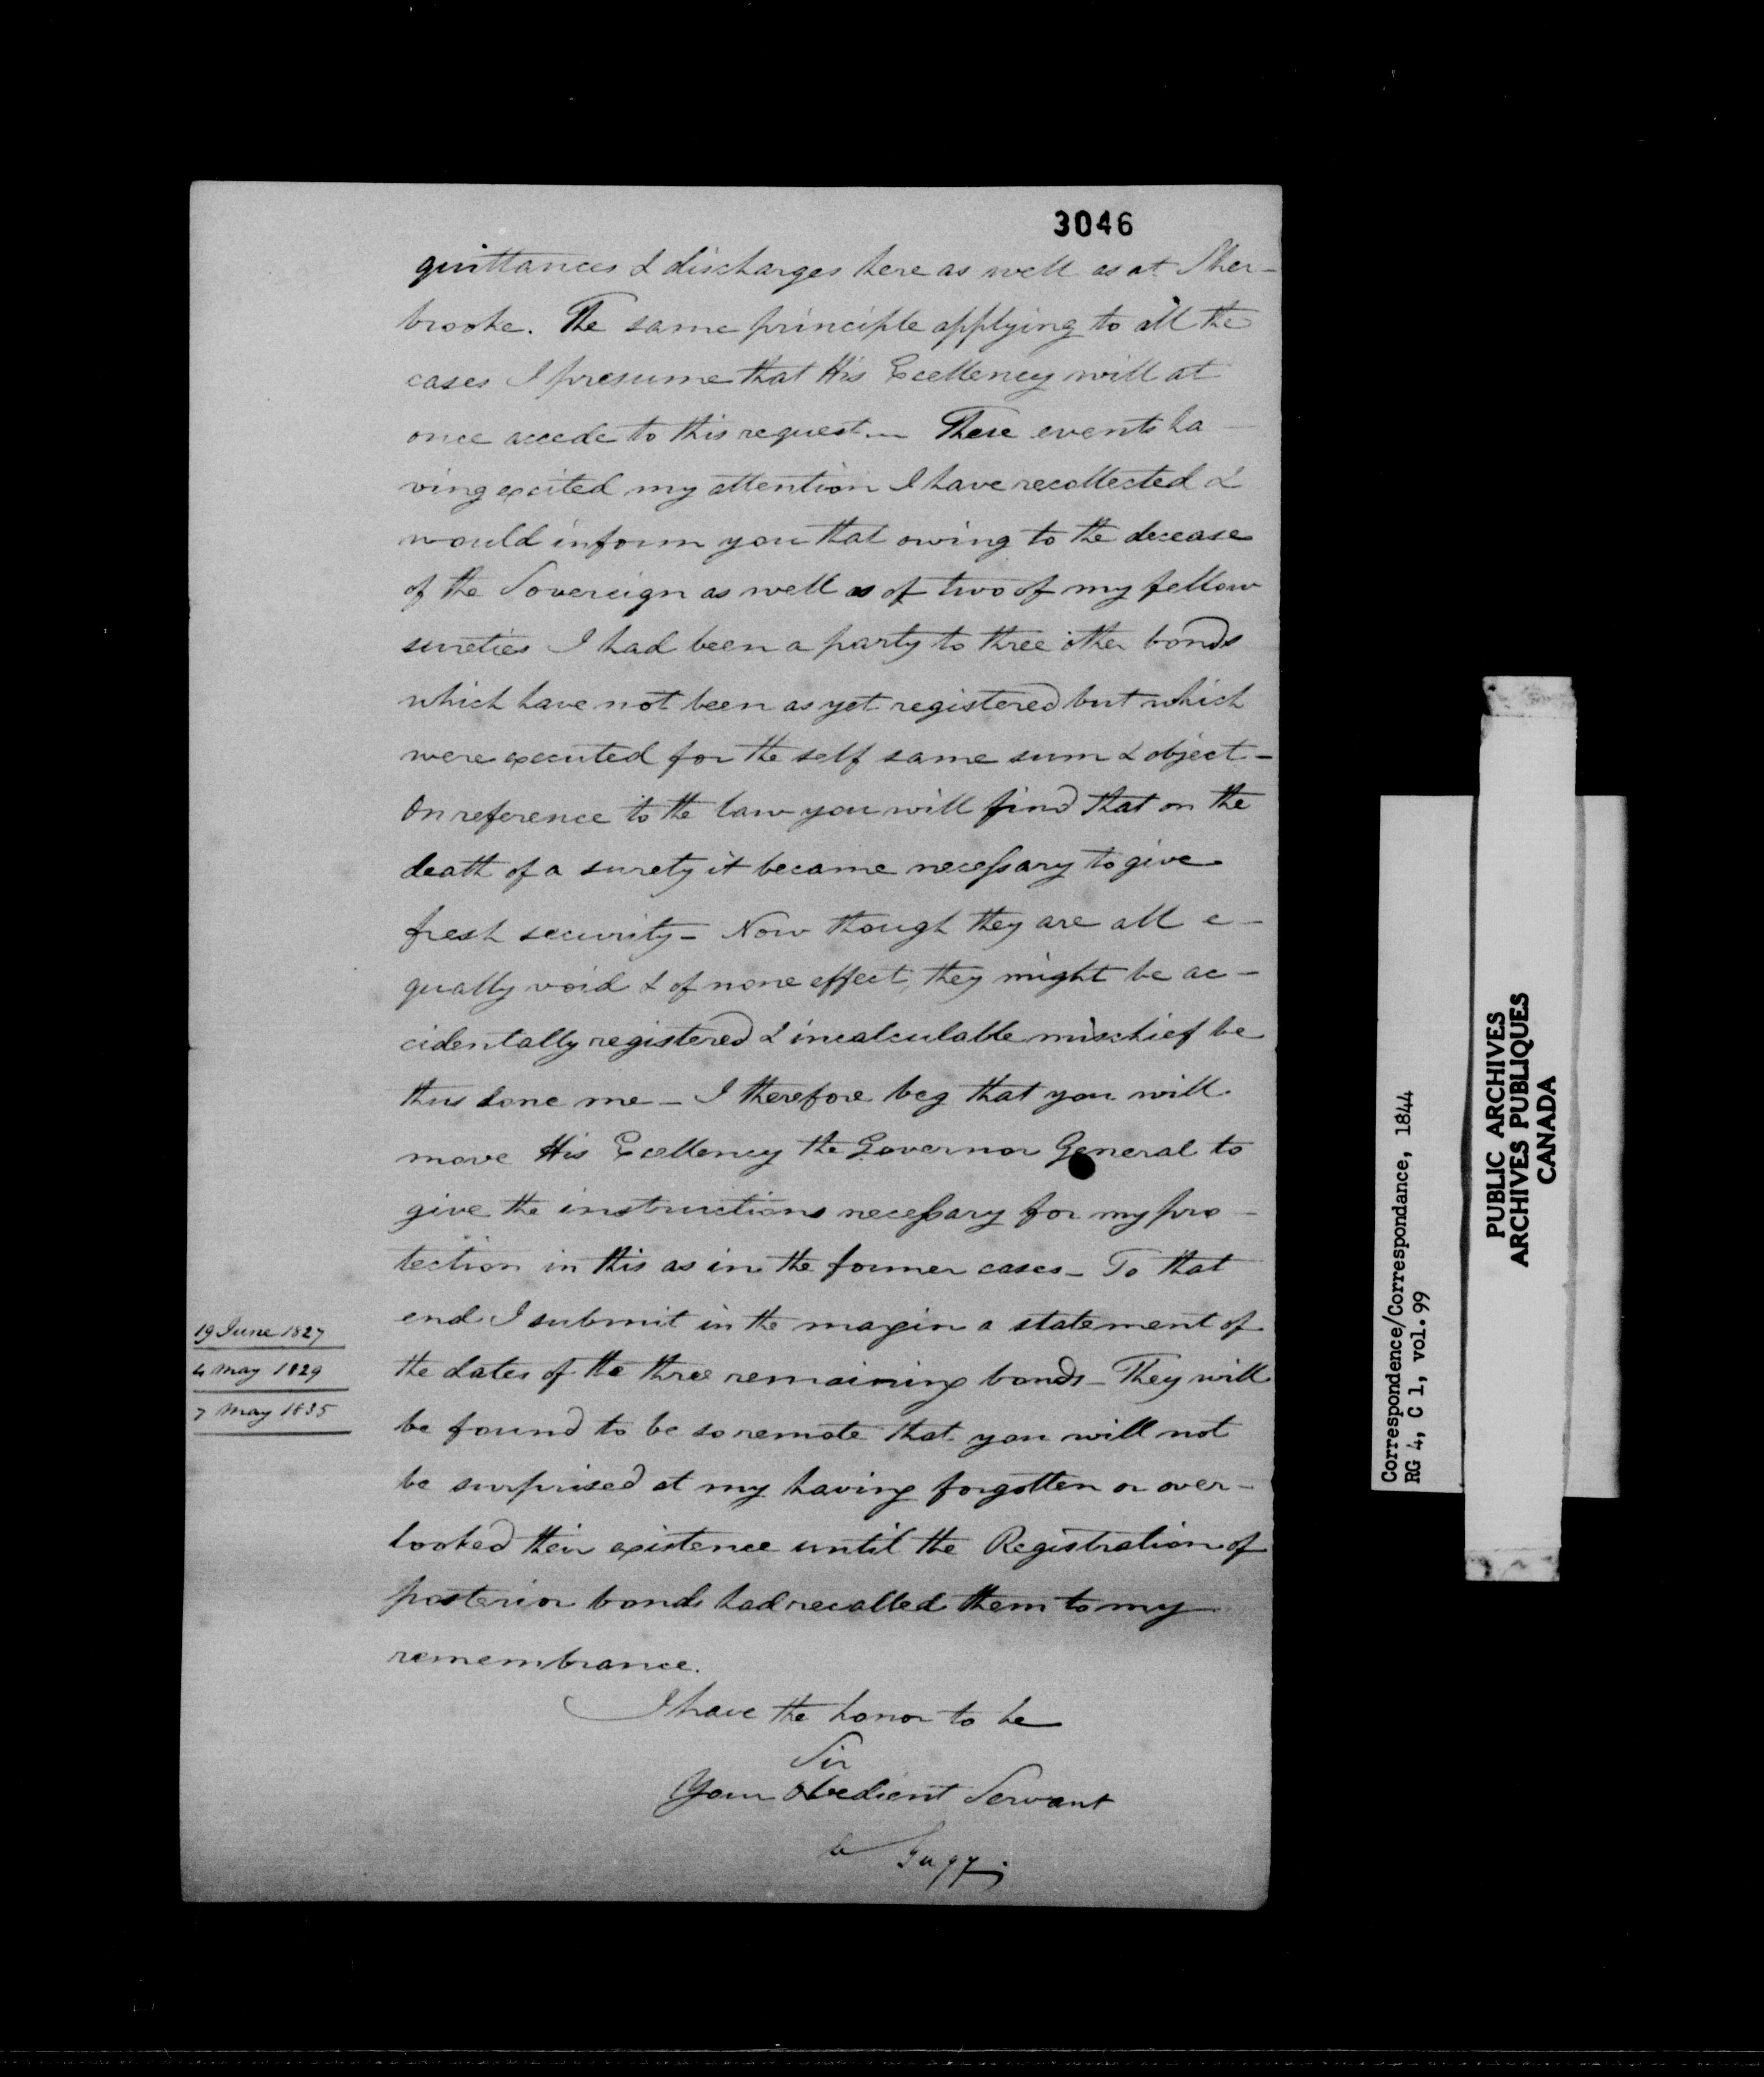 3046
quittances & discharges here as well as at Sher-
brooke. The same principle applying to all the
cases I presume that His Excellency will at
once accede to this request — These events ha-
ving excited my attention I have recollected &
would inform you that owing to the decease
of the Sovereign as well as of two of my fellow
sureties I had been a party to three other bonds
which have not been as yet registered but which
were executed for the self same sum & object -
On reference to the law you will find that on the
death of a surety it became necessary to give
fresh security - Now though they are all e-
qually void & of none effect, they might be ac-
cidentally registered & incalculable mischief be
thus done me - I therefore beg that you will
move His Excellency the Governor General to
give the instructions necessary for my pro-
tection in this as in the former cases - To that
end I submit in the margin a statement of
the dates of the three remaining bonds - They will
be found to be so remote that you will not
be surprised at my having forgotten or over-
looked their existence until the Registration of
posterior bonds had recalled them to my
remembrance.
19 June 1827
4 May 1829
7 May 1835
I have the honor to be
Sir
Your Obedient Servant
Gugy
Correspondence/Correspondance, 1844
RG 4, C 1, vol. 99
PUBLIC ARCHIVES
ARCHIVES PUBLIQUES
CANADA